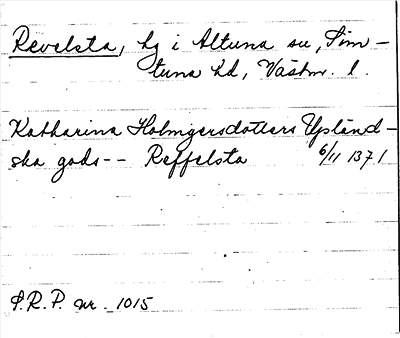 Revelsta, by i Altuna sn, Sim-
tuna hd, Västm. l.
Katharina Holmgersdotters Upländ-
ska gods-- Reffelsta 6/11 1371
S.R.P. nr. 1015